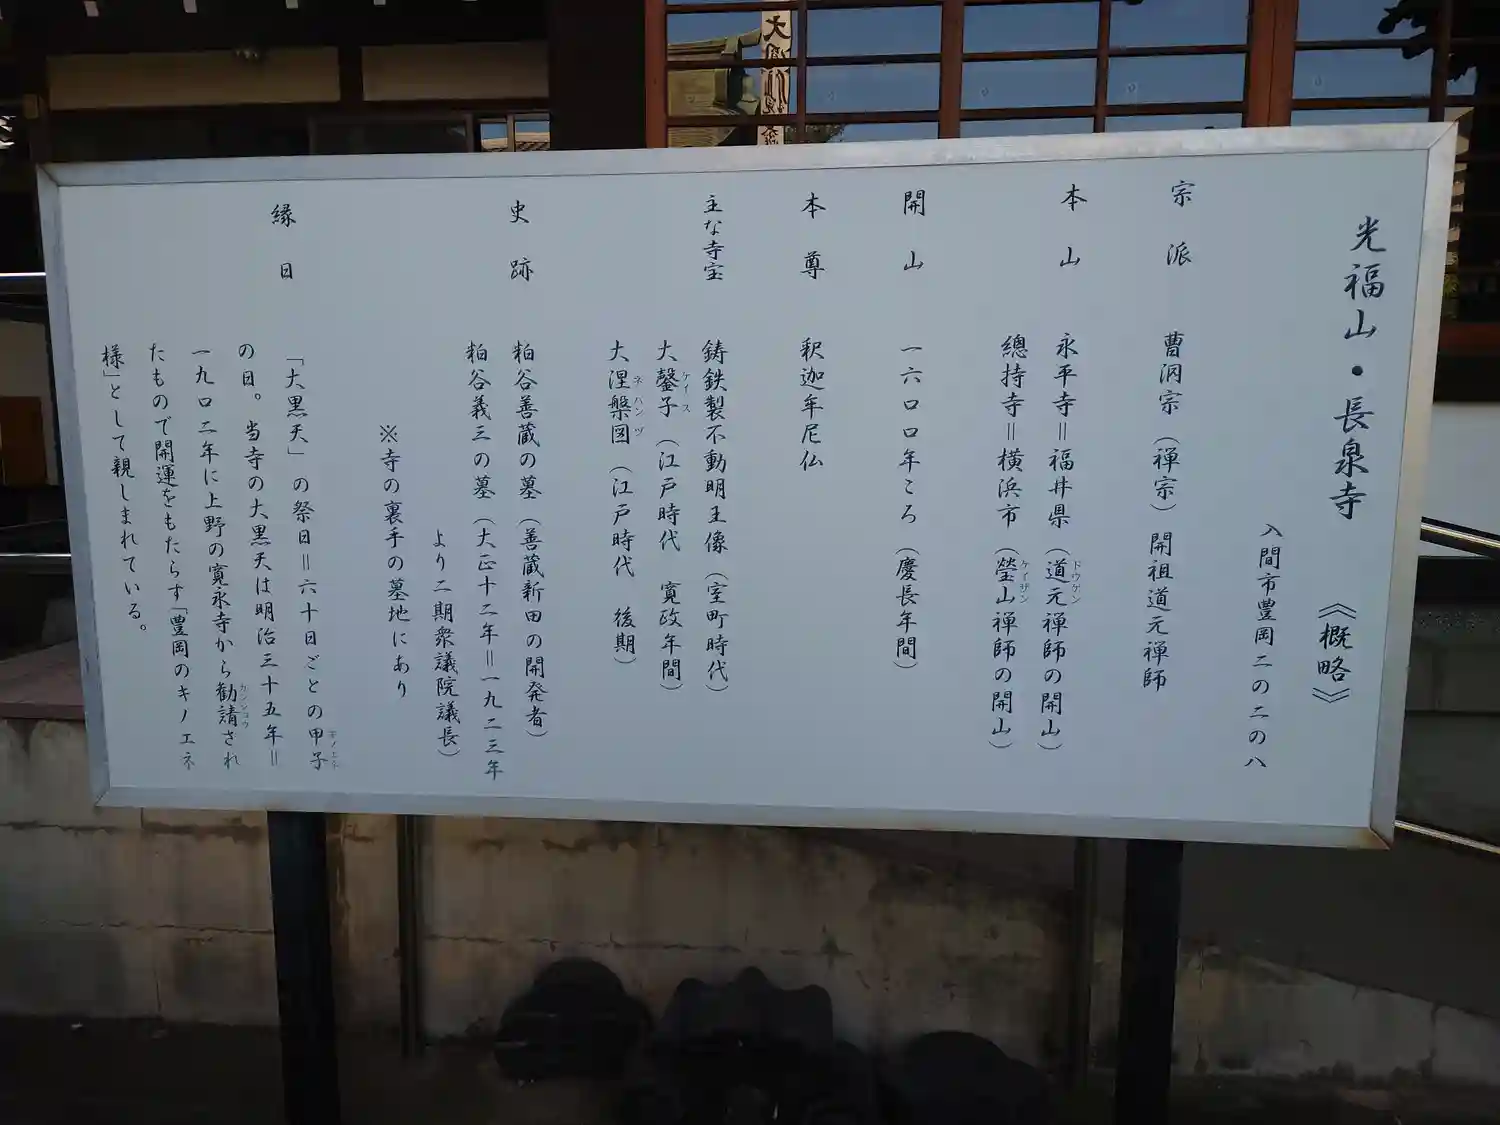 光福山・長泉寺 《概略》
入間市豊岡二の二の八
宗派 曹洞宗（禅宗）開祖道元禅師
本山 永平寺＝福井県（道元禅師の開山）
ドウゲン
總持寺＝横浜市（瑩山禅師の開山）
ケイザン
開山 一六〇〇年ころ（慶長年間）
本尊 釈迦牟尼仏
主な寺宝 鋳鉄製不動明王像（室町時代）
大鏧子（江戸時代 寛政年間）
ケイス
大涅槃図（江戸時代 後期）
ネハンヅ
史跡 粕谷善蔵の墓（善蔵新田の開発者）
粕谷義三の墓（大正十二年＝一九二三年
より二期衆議院議長）
※寺の裏手の墓地にあり
縁日 「大黒天」の祭日＝六十日ごとの甲子
キノエネ
の日。当寺の大黒天は明治三十五年＝
一九〇二年に上野の寛永寺から勧請され
カンジョウ
たもので開運をもたらす「豊岡のキノエネ
様」として親しまれている。